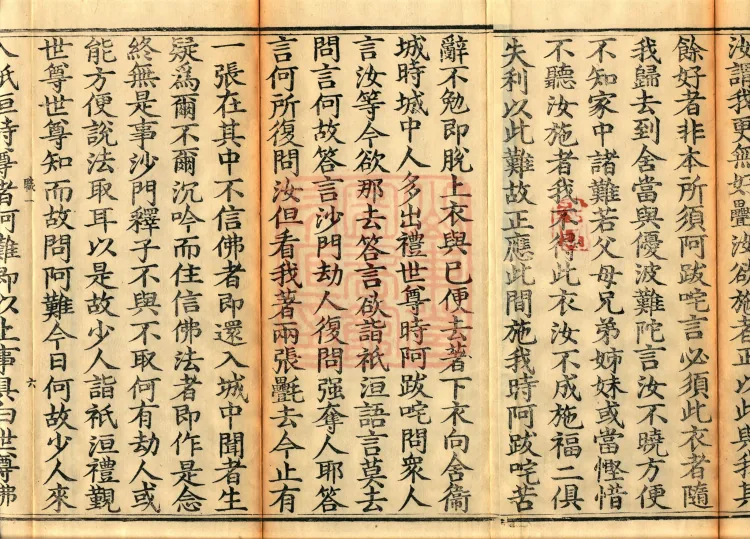 汝謂我更無好疊汝欲施者正以此與我其
餘好者非本所須阿跋咤言必須此衣者隨
我歸去到舍當與優波難陀言汝不曉方便
不知家中諸難若父母兄弟姊妹或當慳惜
不聽汝施者我不得此衣汝不成施福二俱
失利以此難故正應此間施我時阿跋咤苦
辭不勉即脫上衣與已便去著下衣向舍衞
城時城中人多出禮世尊時阿跋咤問衆人
言汝等今欲那去答言欲詣祇洹語言莫去
問言何故答言沙門劫人復問强奪人耶答
言何所復問汝但看我著兩張氎去今止有
一張在其中不信佛者即還入城中聞者生
疑爲爾不爾沉吟而住信佛法者即作是念
終無是事沙門釋子不與不取何有劫人或
能方便說法取耳以是故少人詣祇洹禮覲
世尊世尊知而故問阿難今日何故少人來
職一
六
入祇洹時尊者阿難即以上事具白世尊佛